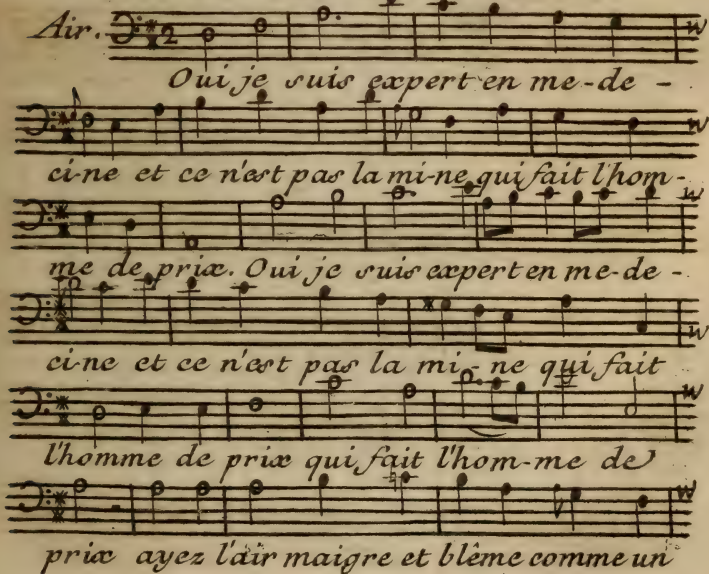 Air. 2
Oui je suis expert en me-de-
ci-ne et ce n'est pas la mi-ne qui fait l'hom-
me de prix. Oui je suis expert en me-de-
ci-ne et ce n'est pas la mi-ne qui fait
l'homme de prix qui fait l'hom-me de
prix ayez l'air maigre et blême comme un